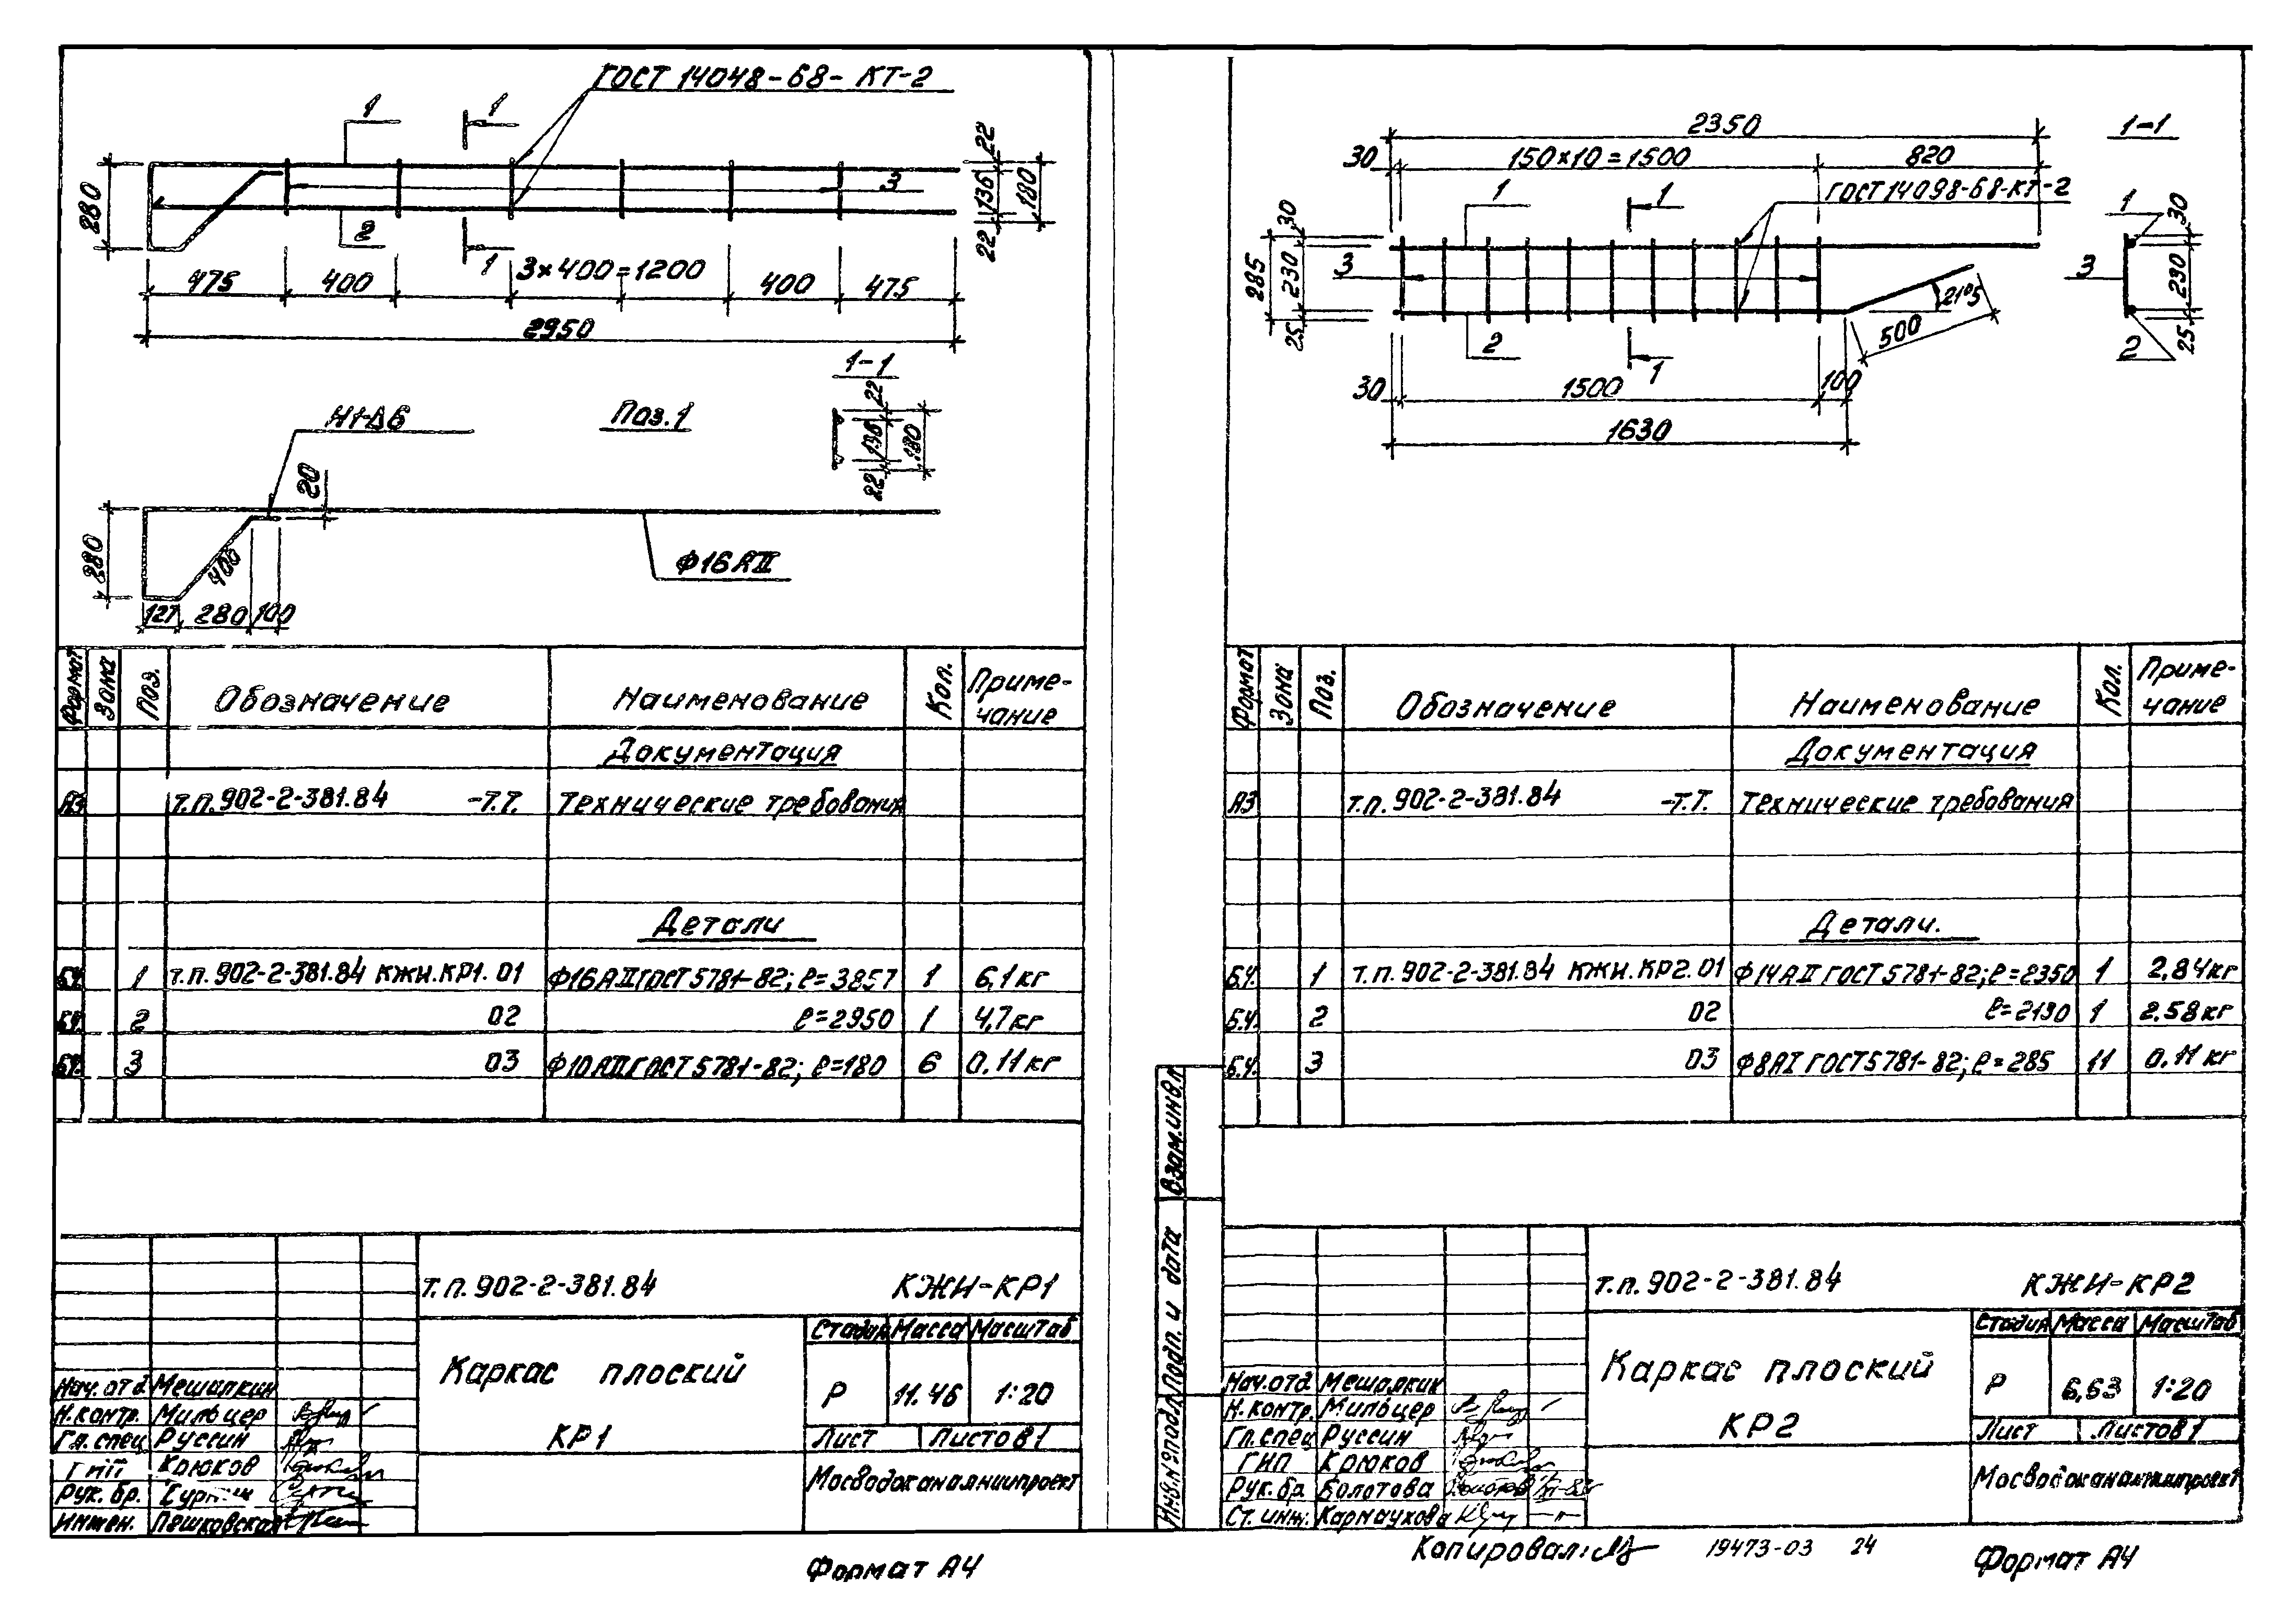 ГОСТ 14048-68-КТ-2
1 1
280
3
22
136
180
22
2
1
475 400 3×400=1200 400 475
2950
1-1
22
136
180
22
Н1-Δ6 Поз.1
20
280
400
Ф16АII
127 280 100
Формат Зона Поз. Обозначение Наименование Кол. Приме-
чание
Документация
А3 т.п.902-2-381.84 -Т.Т. Технические требования
Детали
Б.Ч. 1 т.п.902-2-381.84 КЖИ.КР1.01 Ф16АII ГОСТ 5781-82; ℓ=3857 1 6,1кг
Б.Ч. 2 02 ℓ=2950 1 4,7кг
Б.Ч. 3 03 Ф10АII ГОСТ 5781-82; ℓ=180 6 0.11кг
т.п.902-2-381.84 КЖИ-КР1
Стадия Масса Масштаб
Каркас плоский
КР1
Р 11.46 1:20
Лист Листов 1
Мосводоканалниипроект
Нач.отд Мешалкин
Н.контр. Мильцер
Гл.спец Руссин
ГИП Крюков
Рук.бр.
Инжен. Пешковская
Формат А4
2350
30 150×10=1500 820
1 1 ГОСТ 14098-68-КТ-2
30
285
230
25
3
21°5
500
2
1
30 1500 100
1630
1-1
1
30
3
230
2
25
Формат Зона Поз. Обозначение Наименование Кол. Приме-
чание
Документация
А3 т.п.902-2-381.84 -Т.Т. Технические требования
Детали.
Б.Ч. 1 т.п.902-2-381.84 КЖИ.КР2.01 Ф14АII ГОСТ 5781-82; ℓ=2350 1 2,84кг
Б.Ч. 2 02 ℓ=2130 1 2.58кг
Б.Ч. 3 03 Ф8АI ГОСТ 5781-82; ℓ=285 11 0.11кг
Взам.инв.л
Подп. и дата
Инв.№подл.
т.п.902-2-381.84 КЖИ-КР2
Стадия Масса Масштаб
Каркас плоский
КР2
Р 6,63 1:20
Лист Листов 1
Мосводоканалниипроект
Нач.отд Мешалкин
Н.контр. Мильцер
Гл.спец Руссин
ГИП Крюков
Рук.бр Болотова
Ст.инж. Кармаухова
Копировал: 19473-03 24 Формат А4